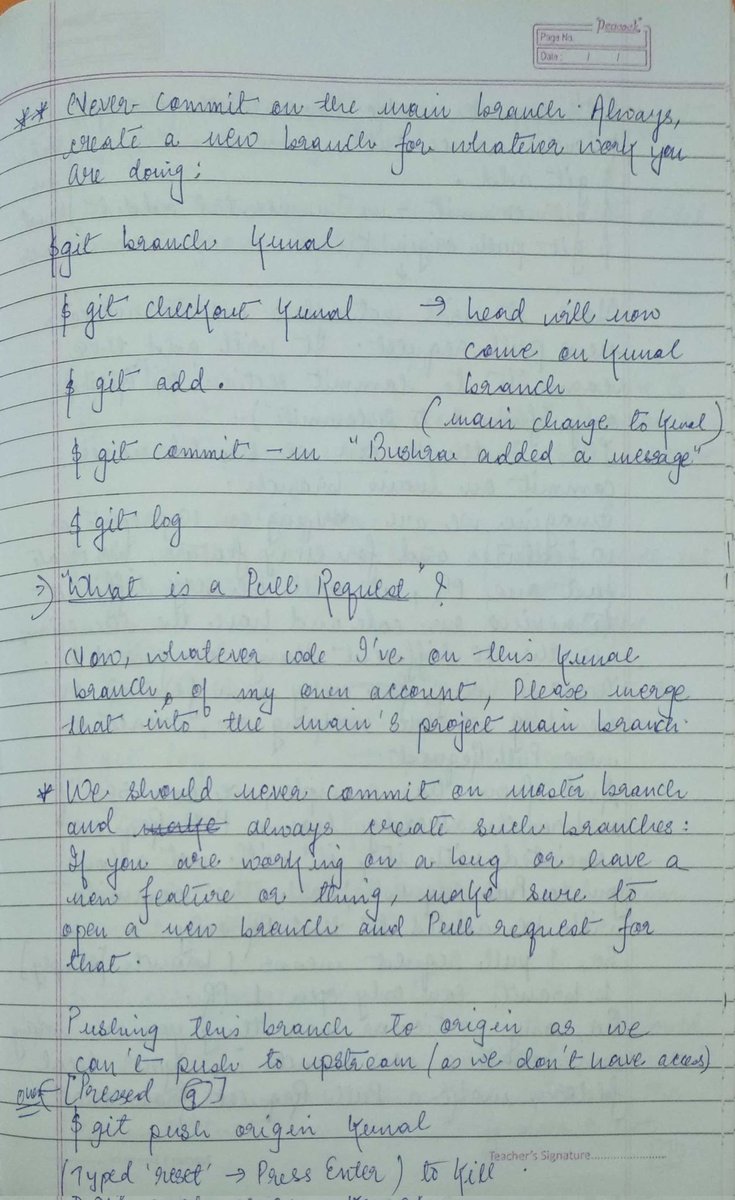 Peacock
Page No.
Date : / /
** Never commit on the main branch. Always,
create a new branch for whatever work you
are doing:
$git branch Kunal
$ git checkout Kunal → head will now
come on Kunal
$ git add . branch
(main change to Kunal)
$ git commit -m "Bushra added a message"
$ git log
=> "What is a Pull Request"?
Now, whatever code I've on this Kunal
branch, of my own account, Please merge
that into the main's project main branch.
* We should never commit on master branch
and make always create such branches:
If you are working on a bug or have a
new feature or thing, make sure to
open a new branch and Pull request for
that.
Pushing this branch to origin as we
can't push to upstream (as we don't have acces)
[Pressed q]
$ git push origin Kunal
Teacher's Signature
(Typed 'reset' → Press Enter) to kill.